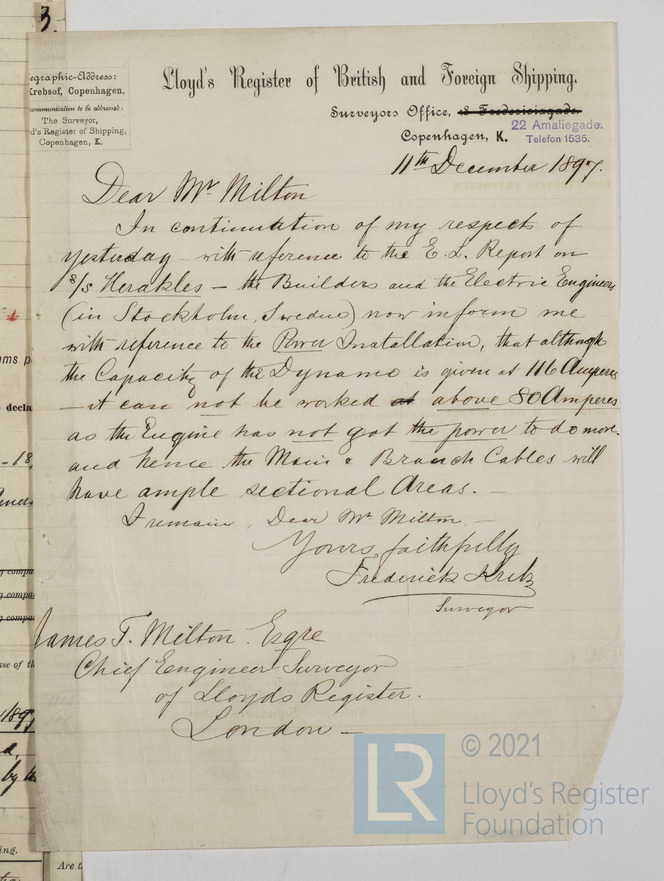 3.
egraphic-Address:
Krebsof, Copenhagen.
ommunication to be addressed:
The Surveyor,
d's Register of Shipping,
Copenhagen, K.
Lloyd's Register of British and Foreign Shipping.
Surveyors Office, 18 Fredericiagade.
22 Amaliegade.
Copenhagen, K.
Telefon 1535.
11th December 1897.
Dear Mr Milton
In continuation of my respects of
yesterday with reference to the E. L. Report on
s/s Herakles – the Builders and the Electric Engineers
(in Stockholm, Sweden) now inform me
with reference to the Power Installation, that although
the Capacity of the Dynamo is given at 116 Amperes
– it can not be worked at above 80 Amperes
as the Engine has not got the power to do more
and hence the Main & Branch Cables will
have ample sectional Areas. –
I remain, Dear Mr Milton. –
Yours faithfully
Frederick Krebs
Surveyor
James T. Milton Esqre
Chief Engineer Surveyor
of Lloyds Register.
London –
ms p
decla
- 18
g compa
g compa
g compa
ase of th
189
by
ing.
Are t
LR
© 2021
Lloyd's Register
Foundation